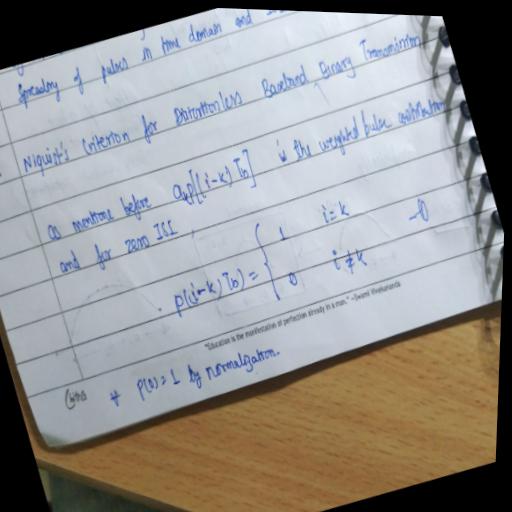 Spreading of pulses in time domain and
Niquist's Criterion for Distortionless Baseband Binary Transmission
as mentione before aₖp[(i-k)Tb] is the weighted pulse contribution
and for zero ISI,
p((i-k)Tb) = { 1 i=k
0 i≠k -①
"Education is the manifestation of perfection already in a man." -Swami Vivekananda
+ p(0)=1 by normalization.